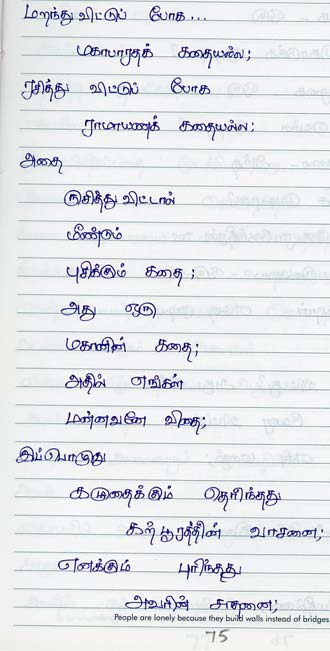 மறந்து விட்டுப் போக...
மகாபாரதக் கதையல்ல;
ரசித்து விட்டுப் போக
ராமாயணக் கதையல்ல;
அதை
ருசித்து விட்டால்
மீண்டும்
புசிக்கும் கதை;
அது ஒரு
மகானின் கதை;
அதில் எங்கள்
மன்னவனே விதை;
இப்பொழுது
கழுதைக்கும் தெரிந்தது
கற்பூரத்தின் வாசனை;
எனக்கும் புரிந்தது
அவரின் சாதனை;
People are lonely because they build walls instead of bridges
75